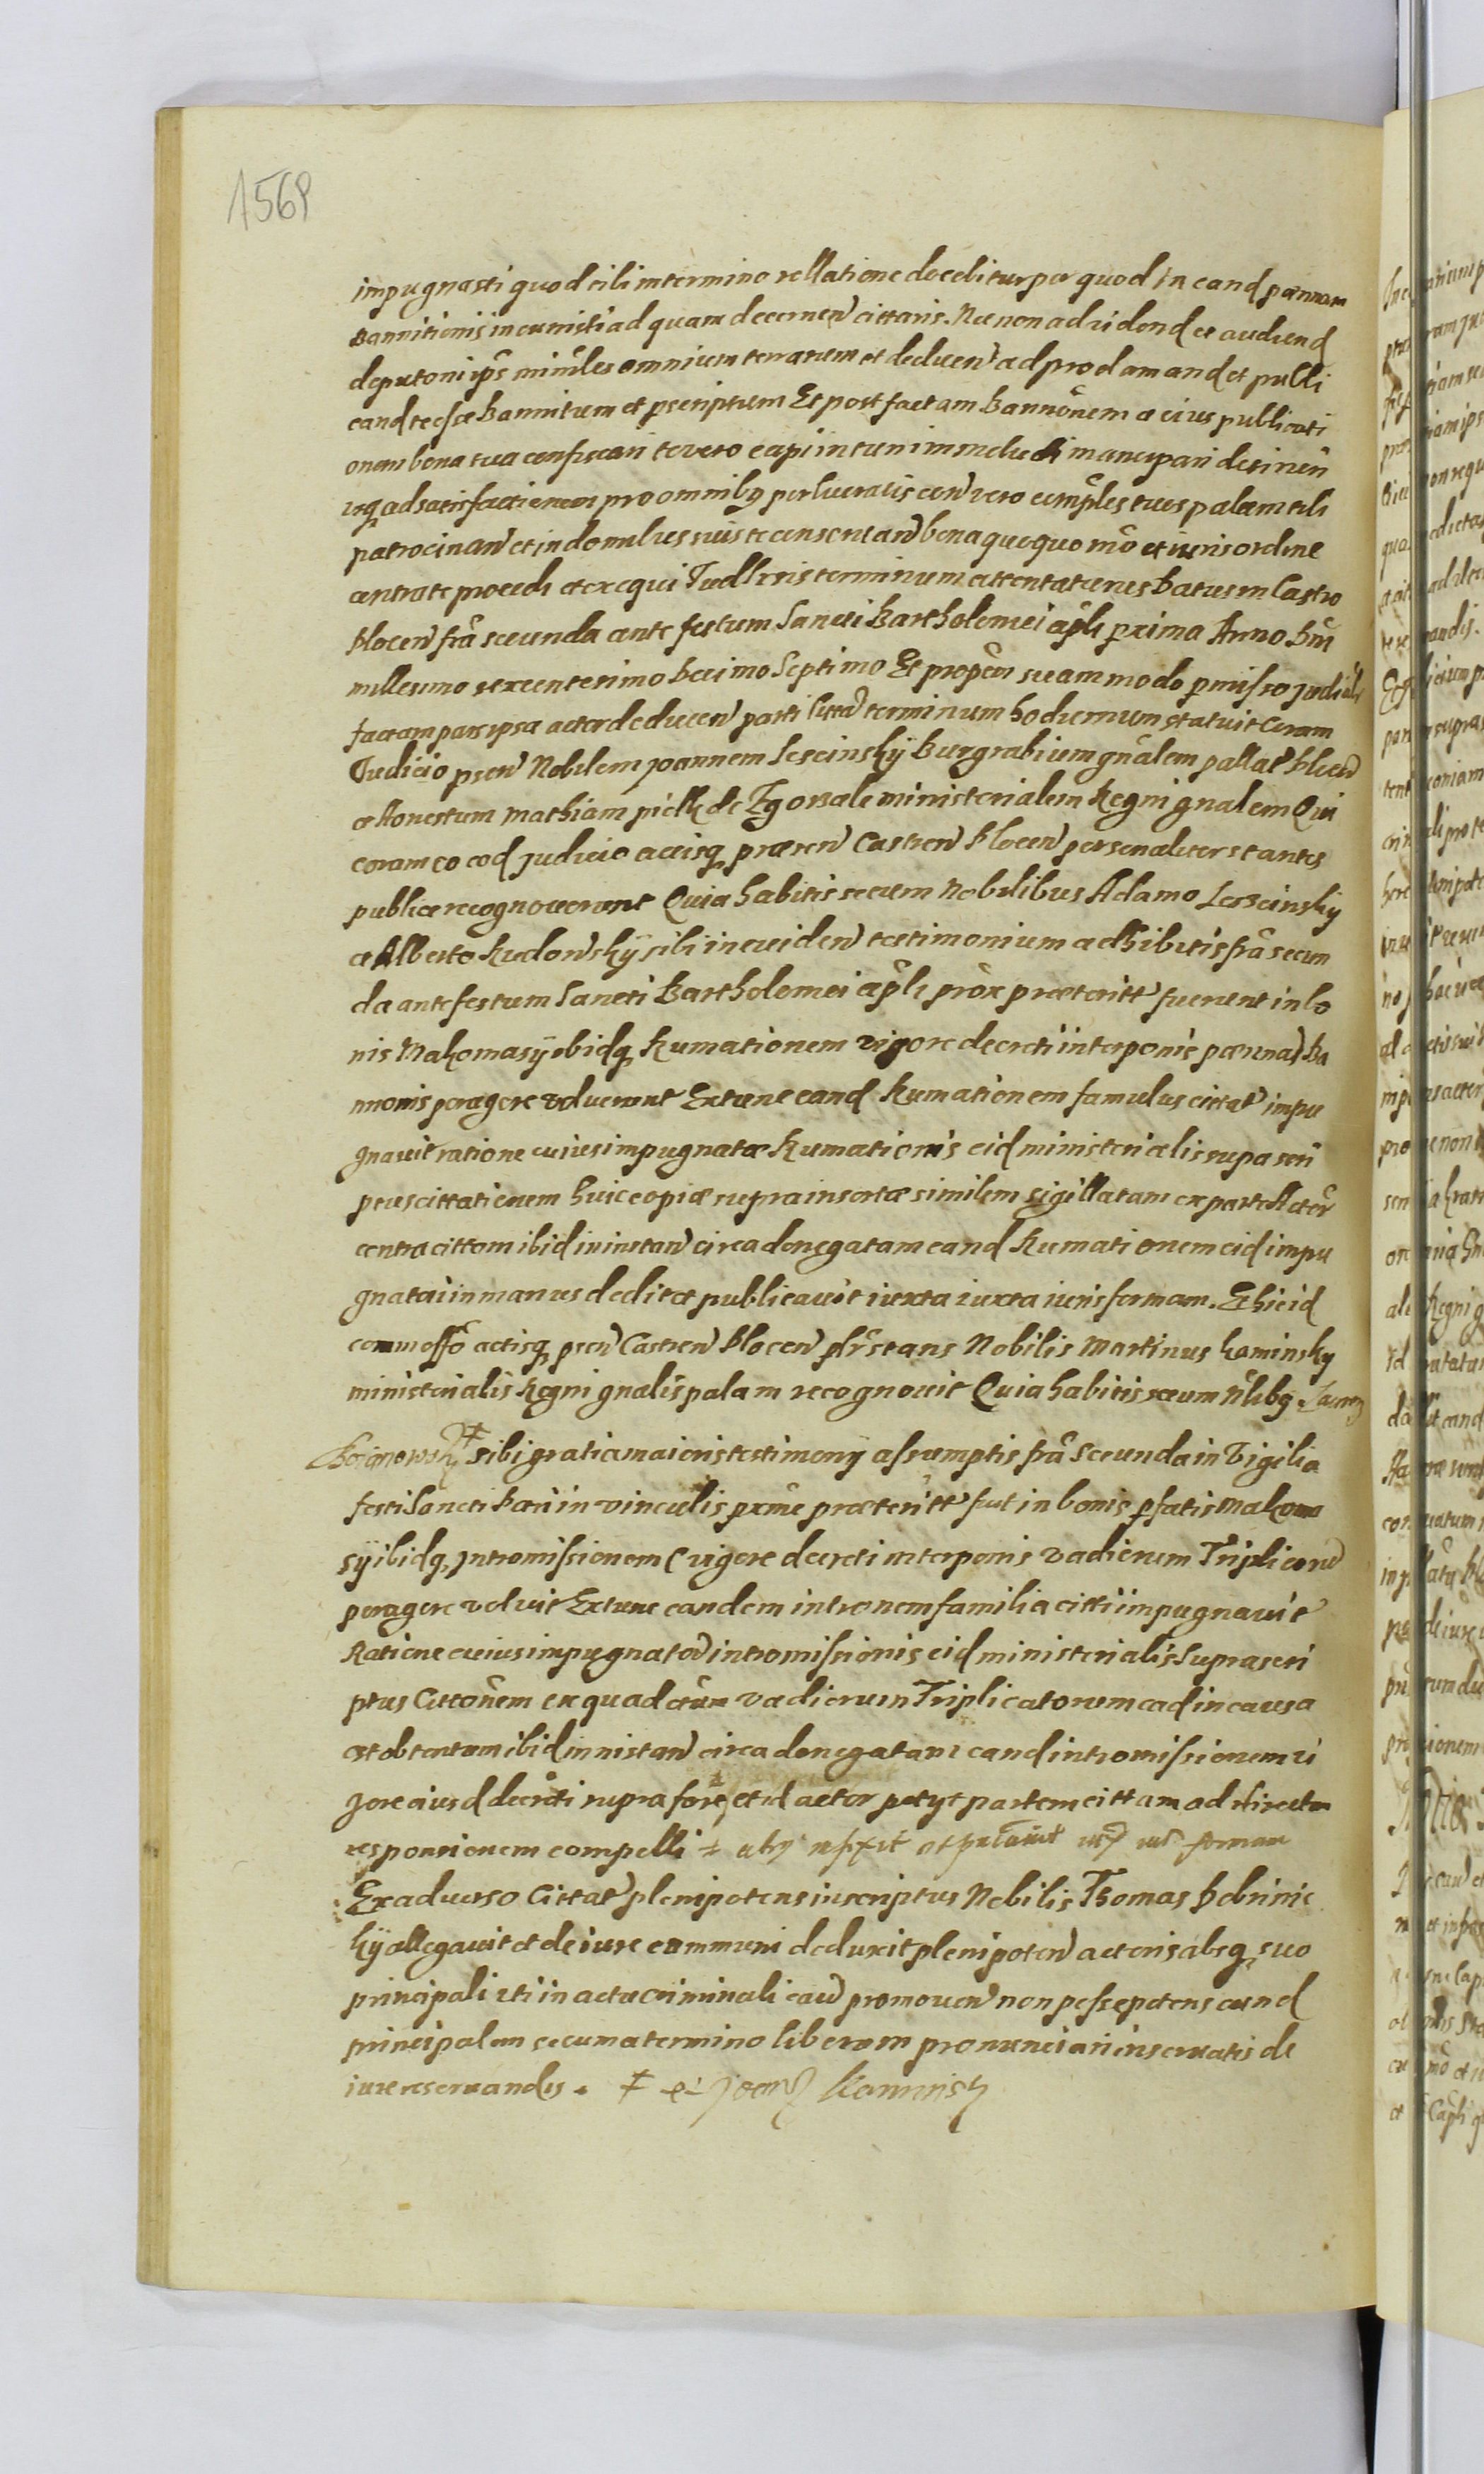 1568
impugnasti quod tibi in termino rellatione docebitur per quod in eand pænnam
Bannitionis incurristi ad quam decernen cittaris. Nec non ad vidend et audiend
deputari ips ministeriales omnium terrarum et deducen ad proclamand et publi
cand te esse Bannitum et pscriptum Et post factam Bannonem ac eius publicati
onem bona tua confiscari te vero capi in tum immedi mancipari detineri
usq ad satisfactionem pro omnibq perlucratis vero complices tuos palam tibi
patrocinan et in domibus suis te conservan bona quoquo mo et iuris ordine
contra te procedi et exequi Judl terminum attentaturus Datum in Castro
Plocen fra secunda ante festum Sancti Bartholomei apli pxima Anno Dni
millesimo sexcentesimo decimo septimo Et propoem suam modo pmisso judiciali
factam pars ipsa actor deducen parti citta terminum hodiernum statuit Coram
Judicio psen Nobilem Joannem Lescinskÿ Burgrabium gnalem pallat Plocen
et Honestum Mathiam de Zgorzale ministerialem Regni gnalem Qui
coram eo eod judicio actisq præsen Castren Plocen personaliter stantes
publice recognoverunt Quia habitis secum Nobilibus Adamo Leszcinsky
et Alberto Rudowskÿ sibi in eviden testimonium adhibitis fra secun
da ante festum Sancti Bartholomei apli prox præteritt fuerunt in bo
nis Makomasÿ ibidq Rumationem vigore decreti interponis pænna Ba
nnonis peragere voluerunt Extunc eand Rumationem famulus cittat impu
gnavit ratione cuius impugnatæ Rumationis eid ministerialis supra scri
ptus cittationem huic copiæ supra insertæ similem sigillatam ex parte Actor
contra cittom ibid in instan circa denegatam eand Rumationem eid impu
gnatori in manus dedit et publicavit iuxta iuxta iuris formam. Et hic id
comm offo actisq psen Castren Plocen plr stans Nobilis Martinus Kaminsky
ministerialis Regni gnalis palam recognovit Quia habitis secum nlibq
sibi gratia maioris testimony assumptis fra Secunda in Vigilia
festi Sancti Petri in vinculis pxime præteritt fuit in bonis pfatis Makoma
sÿ ibidq Intromissionem vigore decreti interponis vadiorum Triplicon
peragere voluit Extunc eandem intronem familia citti impugnavit
Ratione cuius impugnatæ intromissionis eid ministerialis supra scri
ptus Cittonem ex quadrum vadiorum Triplicatorum ead in causa
et obtentam ibid in nistan circa denegatam eand intromissionem vi
gore eiusd decreti supra et id actor petyt partem cittam ad directam
responsionem compelli
Ex adverso Cittat plenipotens inscriptus Nobilis Thomas Dobrinic
kÿ allegavit et de iure communi deduxit plenipoten actoris absq suo
principali uti in acta criminali cau promoven non posse petens eund
principalem secum a termino liberum pronunciari in servatis de
iure reservandis.